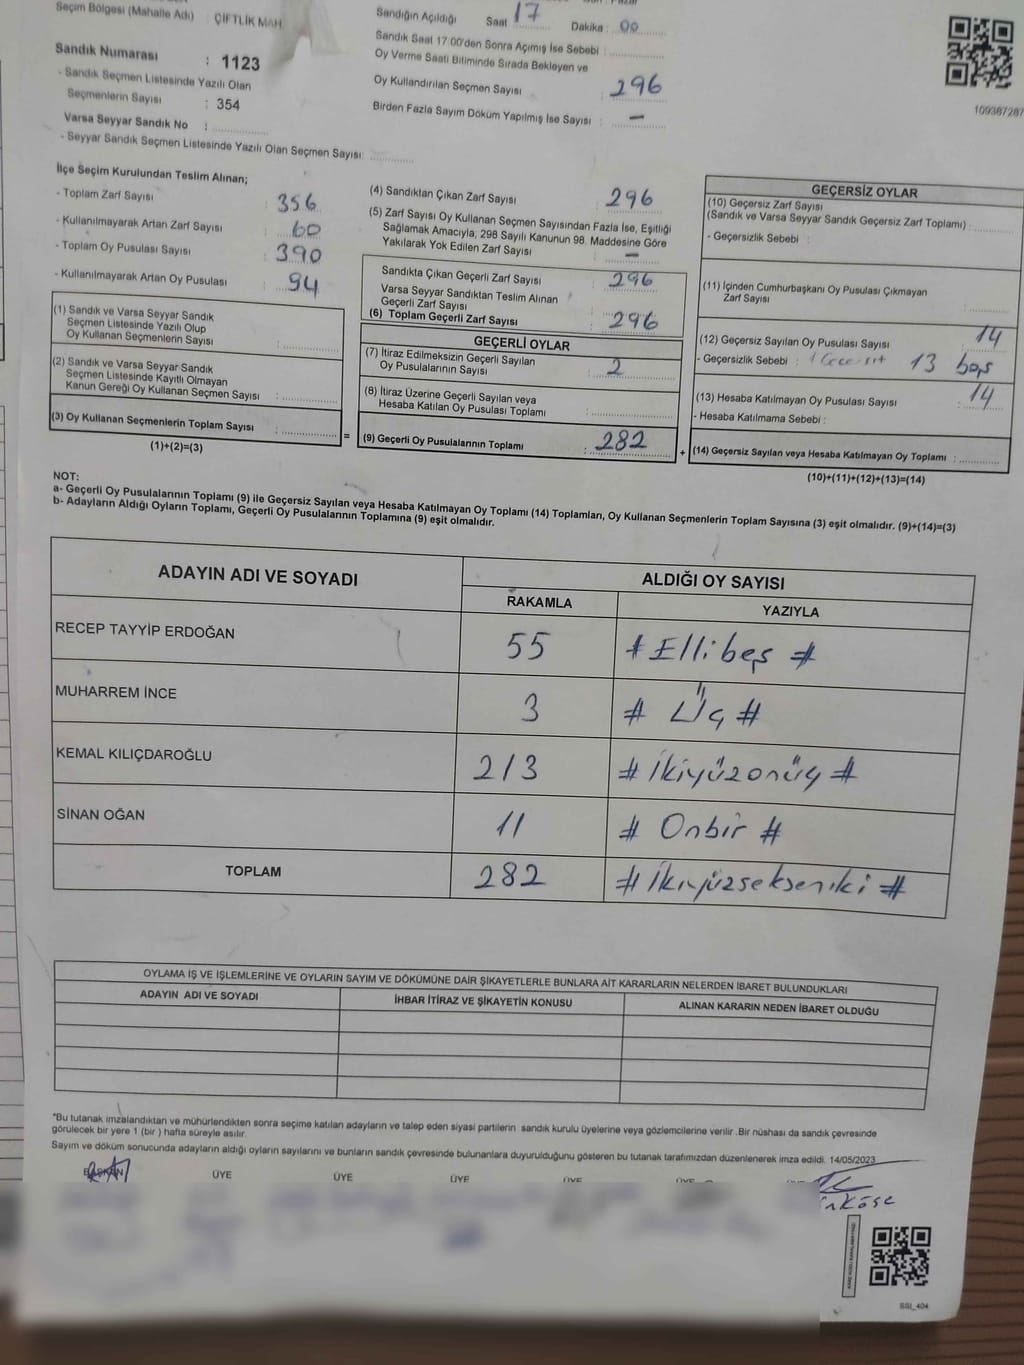 Seçim Bölgesi (Mahalle Adı) : ÇİFTLİK MAH.
Sandık Numarası : 1123
- Sandık Seçmen Listesinde Yazılı Olan
Seçmenlerin Sayısı : 354
Varsa Seyyar Sandık No :
- Seyyar Sandık Seçmen Listesinde Yazılı Olan Seçmen Sayısı:
Sandığın Açıldığı Saat 17 Dakika : 00
Sandık Saat 17:00'den Sonra Açımış İse Sebebi :
Oy Verme Saati Bitiminde Sırada Bekleyen ve
Oy Kullandırılan Seçmen Sayısı : 296
Birden Fazla Sayım Döküm Yapılmış İse Sayısı : –
109387287
İlçe Seçim Kurulundan Teslim Alınan;
- Toplam Zarf Sayısı : 356
- Kullanılmayarak Artan Zarf Sayısı : 60
- Toplam Oy Pusulası Sayısı : 390
- Kullanılmayarak Artan Oy Pusulası : 94
(1) Sandık ve Varsa Seyyar Sandık
Seçmen Listesinde Yazılı Olup
Oy Kullanan Seçmenlerin Sayısı :
(2) Sandık ve Varsa Seyyar Sandık
Seçmen Listesinde Kayıtlı Olmayan
Kanun Gereği Oy Kullanan Seçmen Sayısı :
(3) Oy Kullanan Seçmenlerin Toplam Sayısı :
(1)+(2)=(3)
=
(4) Sandıktan Çıkan Zarf Sayısı : 296
(5) Zarf Sayısı Oy Kullanan Seçmen Sayısından Fazla İse, Eşitliği
Sağlamak Amacıyla, 298 Sayılı Kanunun 98. Maddesine Göre
Yakılarak Yok Edilen Zarf Sayısı : –
Sandıkta Çıkan Geçerli Zarf Sayısı : 296
Varsa Seyyar Sandıktan Teslim Alınan
Geçerli Zarf Sayısı :
(6) Toplam Geçerli Zarf Sayısı : 296
GEÇERLİ OYLAR
(7) İtiraz Edilmeksizin Geçerli Sayılan
Oy Pusulalarının Sayısı : 2
(8) İtiraz Üzerine Geçerli Sayılan veya
Hesaba Katılan Oy Pusulası Toplamı :
(9) Geçerli Oy Pusulalarının Toplamı : 282
+
GEÇERSİZ OYLAR
(10) Geçersiz Zarf Sayısı
(Sandık ve Varsa Seyyar Sandık Geçersiz Zarf Toplamı) :
- Geçersizlik Sebebi :
(11) İçinden Cumhurbaşkanı Oy Pusulası Çıkmayan
Zarf Sayısı :
(12) Geçersiz Sayılan Oy Pusulası Sayısı : 14
- Geçersizlik Sebebi : 1 Geçersiz 13 boş
(13) Hesaba Katılmayan Oy Pusulası Sayısı : 14
- Hesaba Katılmama Sebebi :
(14) Geçersiz Sayılan veya Hesaba Katılmayan Oy Toplamı :
(10)+(11)+(12)+(13)=(14)
NOT:
a- Geçerli Oy Pusulalarının Toplamı (9) ile Geçersiz Sayılan veya Hesaba Katılmayan Oy Toplamı (14) Toplamları, Oy Kullanan Seçmenlerin Toplam Sayısına (3) eşit olmalıdır. (9)+(14)=(3)
b- Adayların Aldığı Oyların Toplamı, Geçerli Oy Pusulalarının Toplamına (9) eşit olmalıdır.
ADAYIN ADI VE SOYADI ALDIĞI OY SAYISI
RAKAMLA YAZIYLA
RECEP TAYYİP ERDOĞAN 55 # Ellibeş #
MUHARREM İNCE 3 # Üç #
KEMAL KILIÇDAROĞLU 213 # İkiyüzonüç #
SİNAN OĞAN 11 # Onbir #
TOPLAM 282 # İkiyüzsekseniki #
OYLAMA İŞ VE İŞLEMLERİNE VE OYLARIN SAYIM VE DÖKÜMÜNE DAİR ŞİKAYETLERLE BUNLARA AİT KARARLARIN NELERDEN İBARET BULUNDUKLARI
ADAYIN ADI VE SOYADI İHBAR İTİRAZ VE ŞİKAYETİN KONUSU ALINAN KARARIN NEDEN İBARET OLDUĞU
*Bu tutanak imzalandıktan ve mühürlendikten sonra seçime katılan adayların ve talep eden siyasi partilerin sandık kurulu üyelerine veya gözlemcilerine verilir .Bir nüshası da sandık çevresinde
görülecek bir yere 1 (bir ) hafta süreyle asılır.
Sayım ve döküm sonucunda adayların aldığı oyların sayılarını ve bunların sandık çevresinde bulunanlara duyurulduğunu gösteren bu tutanak tarafımızdan düzenlenerek imza edildi. 14/05/2023
BAŞKAN ÜYE ÜYE ÜYE ÜYE ÜYE
SSI_404